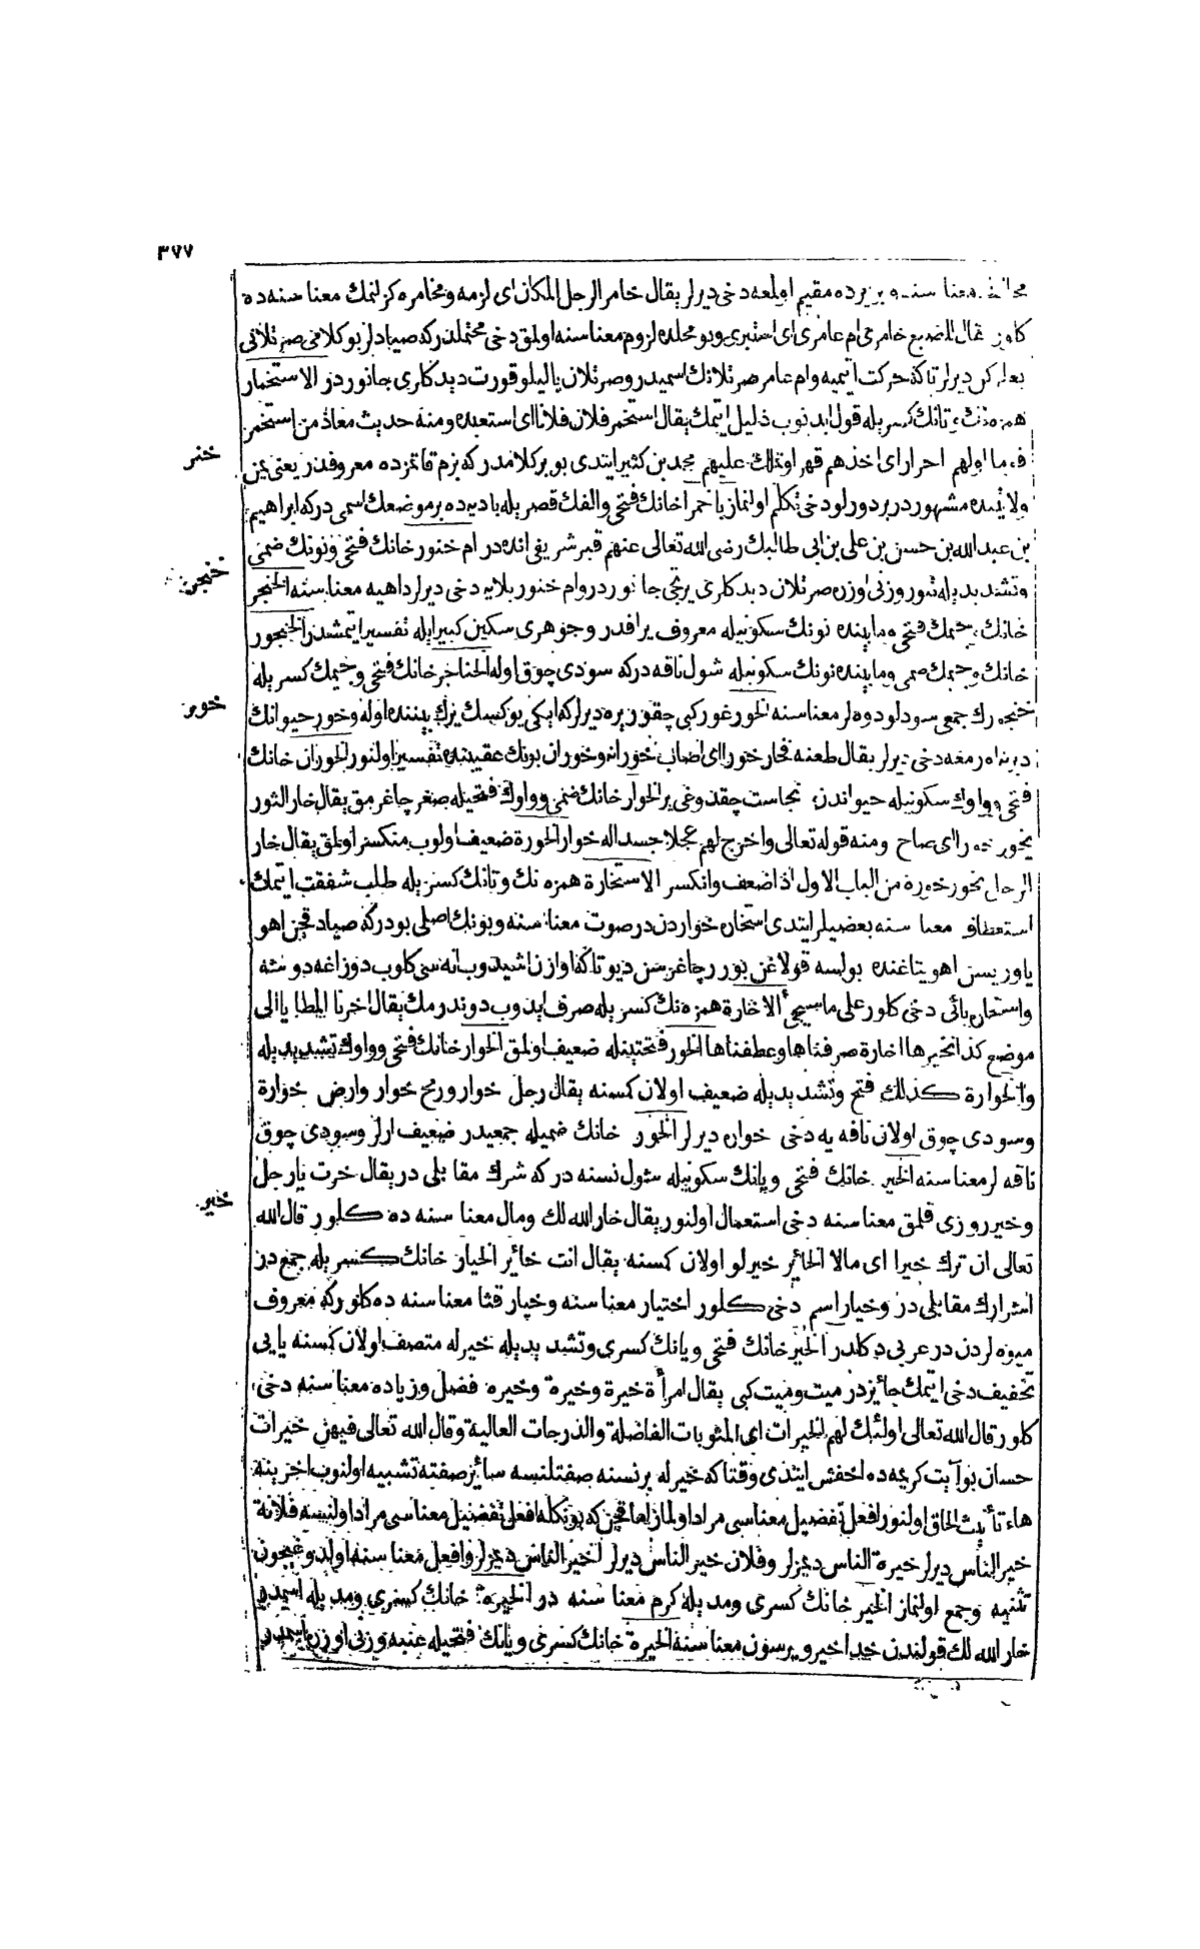 ٣٧٧
معنا سنه و بر يرده مقيم اولمغه دخى ديرلر يقال خامر الرجل المكان اى لزمه ومخامره كزلنمك معنا سنه ده
كلور يقال للضبع خامرى ام عامر اى استترى وبو محلده لزوم معنا سنه اولمق دخى محتملدركه صياد لر بو كلامى صرتلانى
ديرلر تاكه حركت ايتميه وام عامر صرتلانك اسميدر وصرتلان ياليلو قورت ديدكلرى جانوردر الاستخمار
همزه نك وتانك كسر يله قول ايدنوب ذليل ايتمك يقال استخمر فلان فلانا اى استعبده ومنه حديث معاذ من استخمر
قوما اولهم احرار اى اخذهم قهرا وتملك عليهم محمد بن كثير ايتدى بو بر كلامدركه بزم قاتمزده معروفدر يعنى يمن
خنر
ولايتنده مشهوردر بر دورلو دخى تكلم اولنماز باخمرا خانك فتحى والفك قصر يله باديه ده بر موضعك اسمى دركه ابراهيم
بن عبد الله بن حسن بن على بن ابى طالبك رضى الله تعالى عنهم قبر شريفى انده در ام خنور خانك فتحى ونونك ضمى
وتشديد يله تنور وزنى اوزره صرتلان ديدكلرى يرتجى جانوردر وام خنور بلايه دخى ديرلر داهيه معنا سنه الخنجر
خنجر
خانك وجيمك فتحى وما بينده نونك سكونيله معروف يراقدر وجوهرى سكين كبير ايله تفسير ايتمشدر الخنجور
خانك وجيمك ضمى وما بينده نونك سكونيله شول ناقه دركه سودى چوق اوله الخناجر خانك فتحى وجيمك كسر يله
خنجورك جمعى سودلو دوه لر معنا سنه الخور غور كبى چقور يره ديرلر كه ايكى يوكسك يرك بيننده اوله وخور حيوانك
خور
دبرينه ديرلر يقال طعنه فخار خورا اى اصاب خورانه وخوران بونك عقيبنده تفسير اولنور الخوران خانك
فتحى وواوك سكونيله حيواندن نجاست چقدوغى ير الخوار خانك ضمى وواوك فتحيله صغر چاغرمق يقال خار الثور
يخور خورا اى صاح ومنه قوله تعالى واخرج لهم عجلا جسدا له خوار الخورة ضعيف اولوب منكسر اولمق يقال خار
الرجل يخور خورة من الباب الاول اذا ضعف وانكسر الاستخارة همزه نك وتانك كسر يله طلب شفقت ايتمك
استعطاف معنا سنه بعضيلر ايتدى استخاره خواردندر صوت معنا سنه وبونك اصلى بودركه صياد قچن اهو
ياوريسن اهو يتاغنده بولسه قولاغن بورر چاغرسن ديو تاكه اوازن اشيدوب آنه سى كلوب دوزاغه دوشه
واستخاره يائى دخى كلور على ما سيجئ الاخارة همزه نك كسر يله صرف ايدوب دوندرمك يقال اخرنا المطايا الى
موضع كذا نخيرها اخارة صرفناها وعطفناها الخور فتحتينله ضعيف اولمق الخوار خانك فتحى وواوك تشديد يله
والخوارة كذلك فتح وتشديد يله ضعيف اولان كسنه يقال رجل خوار ورمح خوار وارض خوارة
وسودى چوق اولان ناقه يه دخى خواره ديرلر الخور خانك ضميله جمعيدر ضعيف ارلر وسودى چوق
ناقه لر معنا سنه الخير خانك فتحى ويانك سكونيله شول نسنه دركه شرك مقابلى در يقال خرت يا رجل
خير
وخير روزى قلمق معنا سنه دخى استعمال اولنور يقال خار الله لك ومال معنا سنه ده كلور قال الله
تعالى ان ترك خيرا اى مالا الخائر خيرلو اولان كسنه يقال انت خائر الخيار خانك كسر يله جمع در
اشرارك مقابلى در وخيار اسم دخى كلور اختيار معنا سنه وخيار قثا معنا سنه ده كلور كه معروف
ميوه لردن در عربى دكلدر الخير خانك فتحى ويانك كسرى وتشديد يله خيرله متصف اولان كسنه يايى
تخفيف دخى ايتمك جائزدر ميت وميت كبى يقال امرأة خيرة وخيرة وخيره فضل وزياده معنا سنه دخى
كلور قال الله تعالى اولئك لهم الخيرات اى المثوبات الفاضلة والدرجات العالية وقال الله تعالى فيهن خيرات
حسان بو آيت كريمه ده اخفش ايتدى وقتاكه خيرله بر نسنه صفتلنسه سائر صفته تشبيه اولنوب اخرينه
هاء تأنيث الحاق اولنور افعل تفضيل معناسى مراد اولماز اما قچن كه بونكله افعل تفضيل معناسى مراد اولنسه فلانة
خير الناس ديرلر خيرة الناس ديمزلر وفلان خير الناس ديرلر اخير الناس ديمزلر وافعل معنا سنه اولدوغيچون
تثنيه وجمع اولنماز الخير خانك كسرى ومد يله كرم معنا سنه در الخيرة خانك كسرى ومد يله اسمدر
خار الله لك قولندن خدا خير ويرسون معنا سنه الخيرة خانك كسرى ويانك فتحيله عنبه وزنى اوزره اسمدر